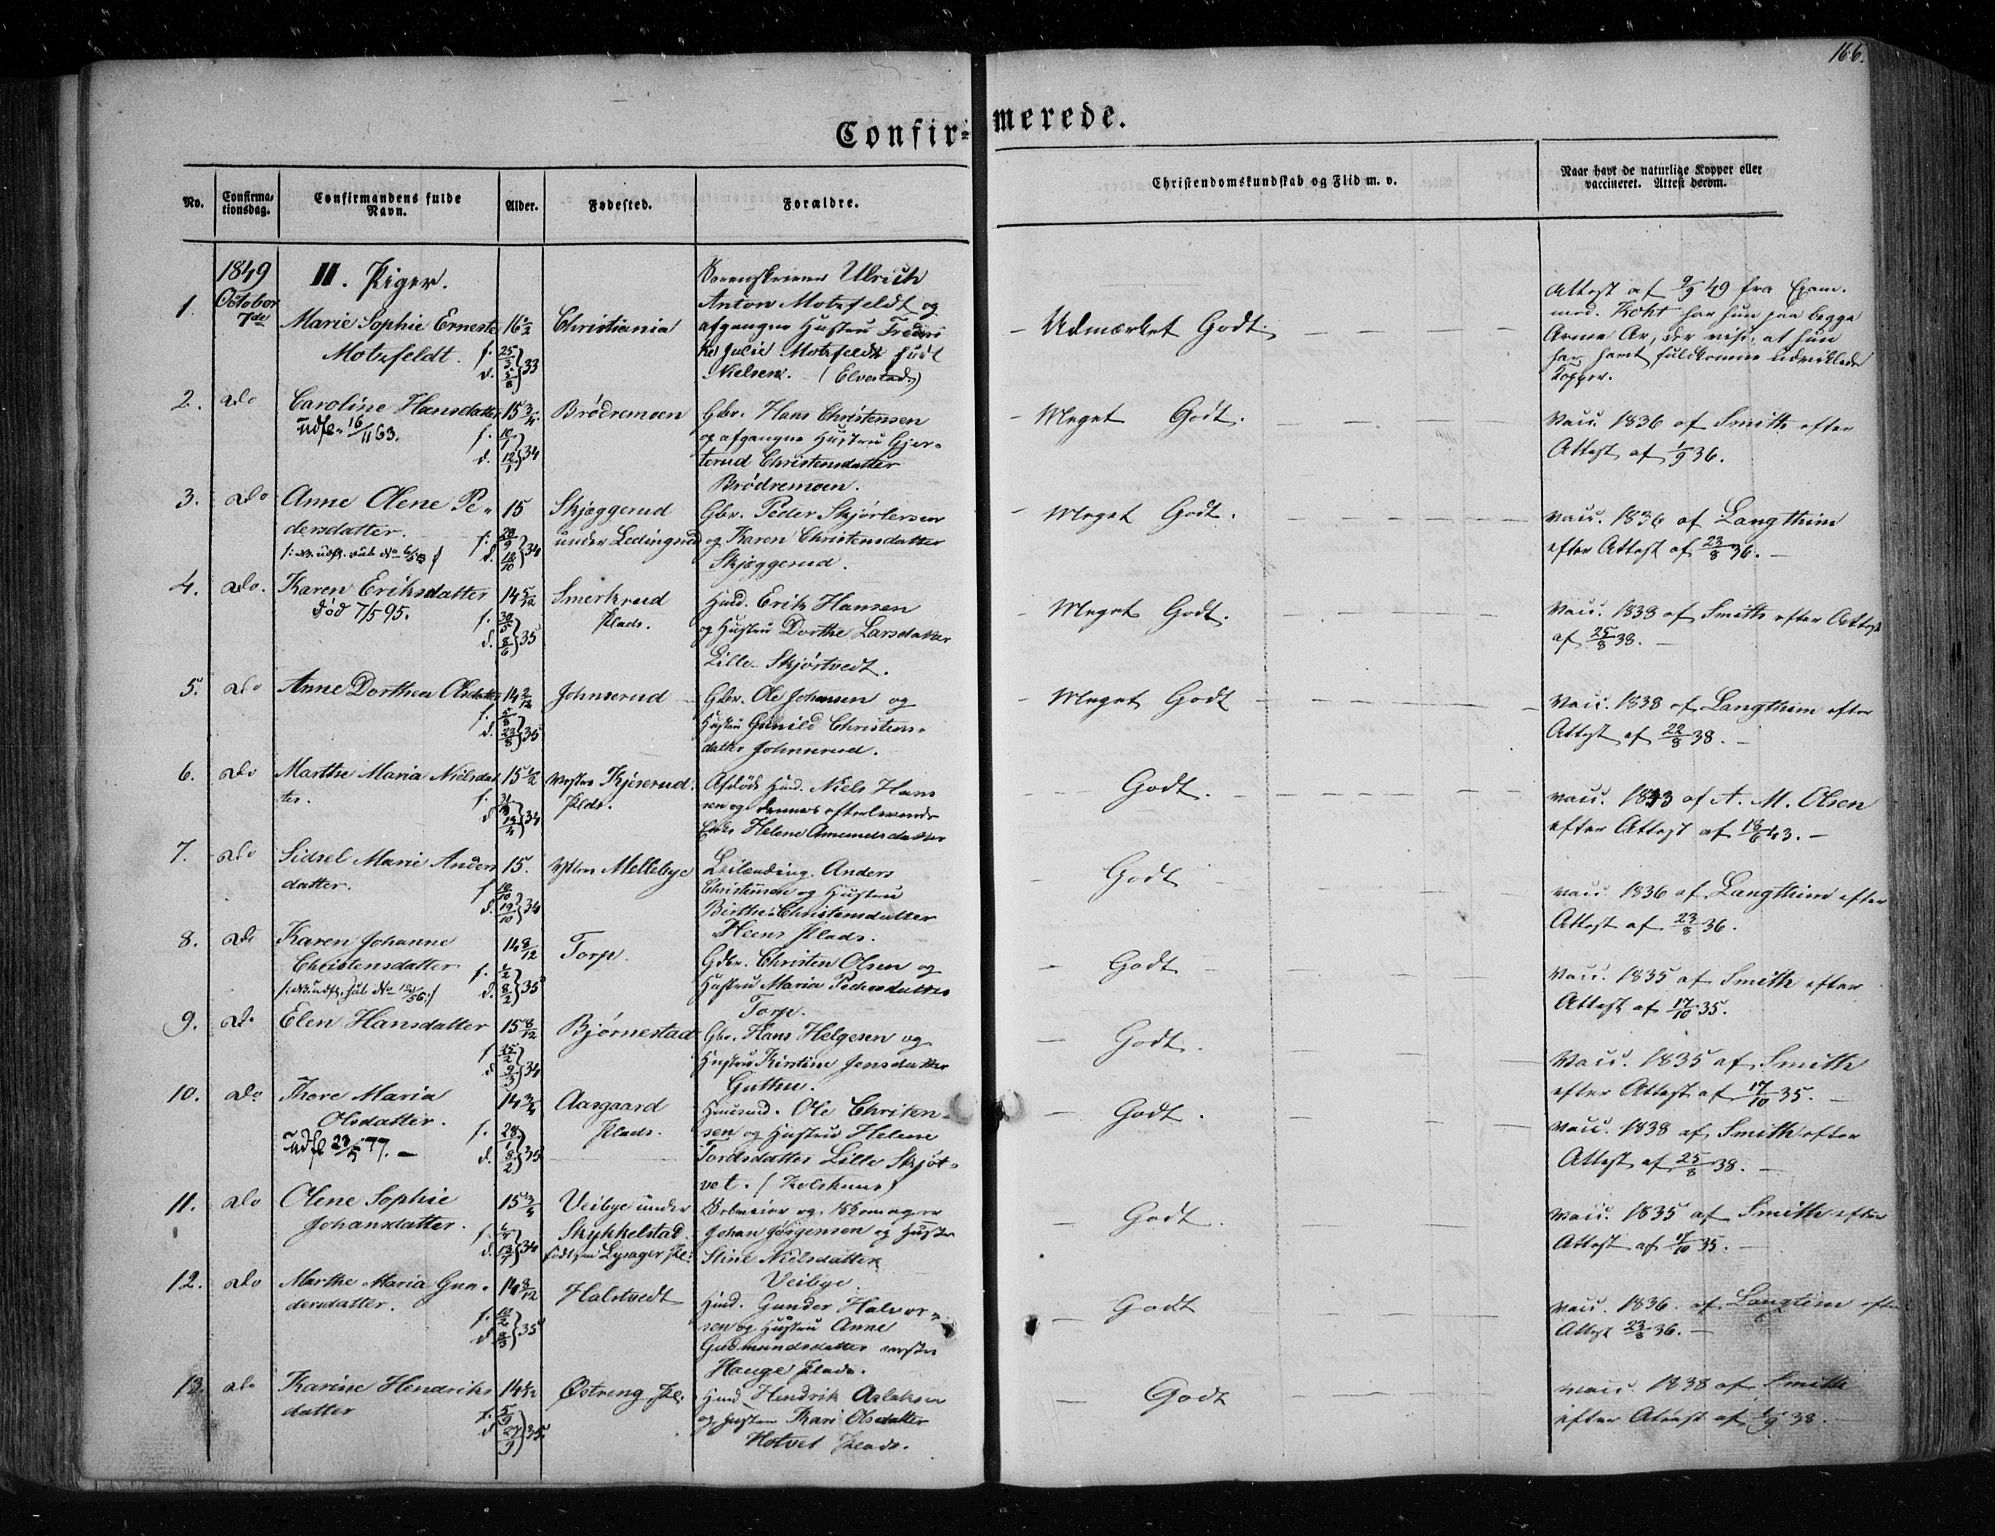 166.
Confirmerede.
No.
Confirmationsdag.
Confirmandens fulde Navn.
Alder.
Fødested.
Forældre.
Christendomskundskab og Flid m. v.
Naar havt de naturlige Kopper eller vaccineret. Attest derom.
1849 II. Piger.
1. October 7de
Marie Sophie Erneste
Motzfeldt. f. 25/3 d. 5/8 } 33
16 6/12
Christiania
Sorenskriver Ulrich
Anton Motzfeldt og
afgangne Hustru Frederi
ke Julie Motzfeldt født
Nielsen. (Elvestad)
Udmærket Godt.
Attest af 9/9 49 fra Exam.
med. Koht har hun paa begge
Arme Ar, der vise, at hun
har havt fuldkomne udviklede
Kopper.
2. Do Caroline Hansdatter 15 3/4 Brødremoen
Udfl. 16/11 63.
f. 10/1 d. 12/1 } 34
Gbr. Hans Christensen
og afgangne Hustru Gjer-
terud Christensdatter
Brødremoen.
Meget Godt.
Vacc. 1836 af Smith efter
Attest af 1/9 36.
3. Do Anne Olene Pe- 15 Skjæggerud
dersdatter. under Ledingrud
f. 20/9 d. 12/10 } 34
Gbr. Peder Skjørtersen
og Karen Christensdatter
Skjæggerud.
Meget Godt.
Vacc. 1836 af Langthim
efter Attest af 23/8 36.
4. Do. Karen Eriksdatter 14 5/12 Smerkrud
død 7/5 95. Plads.
f. 30/5 d. 8/6 } 35
Husd. Erik Hansen
og Hustru Dorthe Larsdatter
Lille Skjørtvedt.
Meget Godt.
Vacc. 1838 af Smith efter Attest
af 25/8 38.
5. Do Anne Dorthea Olsdatter 14 2/12 Johnserud
f. 5/8 d. 23/8 } 35
Gbr. Ole Johansen og
Hustru Gunild Christens-
datter Johnsrud.
Meget Godt
Vacc. 1838 af Langthim efter
Attest af 22/8 38.
6. Do Marthe Maria Nielsdat 15 6/12 Vestre Kjøserud
ter. Plds.
d. 13/4 } 34
Afdøde Husd. Niels Hans
sen og dennes efterlevende
Enke Helene Amundsdatter
Godt.
Vacc. 1843 af A. M. Olsen
efter Attest af 18/6 43.
7. Do Sidsel Marie Anders 15. Østre Mellebye
datter.
f. 10/10 d. 19/10 } 34
Leilænding Anders
Christensen og Hustru
Birthe Christensdatter
Heens Plads.
Godt
Vacc. 1836 af Langthim efter
Attest af 23/8 36.
8. Do Karen Johanne 14 8/12 Torp.
Christensdatter
f. 1/2 d. 8/2 } 35
Gdbr. Christen Olsen og
Hustru Maria Pedersdatter
Torp.
Godt
Vacc. 1835 af Smith efter
Attest af 17/10 35.
9. Do Elen Hansdatter 15 8/12 Bjørnestad
f. 15/2 d. 9/3 } 34
Gbr. Hans Helgesen og
Hustru Kirstine Jensdatter
Guthu.
Godt.
Vacc. 1835 af Smith
efter Attest af 17/10 35.
10. Do Thore Maria 14 3/4 Aasgaard
Olsdatter. Plads.
Udfl 23/5 77.
f. 28/1 d. 8/2 } 35
Huusmd. Ole Christen-
sen og Hustru Helene
Tordsdatter Lille Skjøt-
vet. (Kolshuus)
Godt.
Vacc. 1838 af Smith efter
Attest af 25/8 38.
11. Do Olene Sophie 15 3/4 Veibye under
Johansdatter. Skykkelstad
født paa Lysager Pl.
d. 13/7 } 34
Selveier og Skomager
Johan Jørgensen og Hustru
Stine Nielsdatter
Veibye.
Godt.
Vacc. 1835 af Smith efter
Attest af 17/10 35.
12. Do Marthe Maria Gun- 14 8/12 Halstvedt
dersdatter.
f. 12/2 d. 8/3 } 35
Husd. Gunder Halvor-
sen og Hustru Anne
Gudmundsdatter vestre
Hauge Plads.
Godt
Vacc. 1836. af Langtim efter
Attest 23/8 36.
13. Do Karine Hendriks 14 1/12 Østreng Pl.
datter
f. 5/9 d. 27/9 } 35
Husd Hendrik Aslaksen
og Hustru Kari Olsdatter
Hotvet Plads.
Godt
Vacc. 1838 af Smith
efter Attest af 1/9 38.